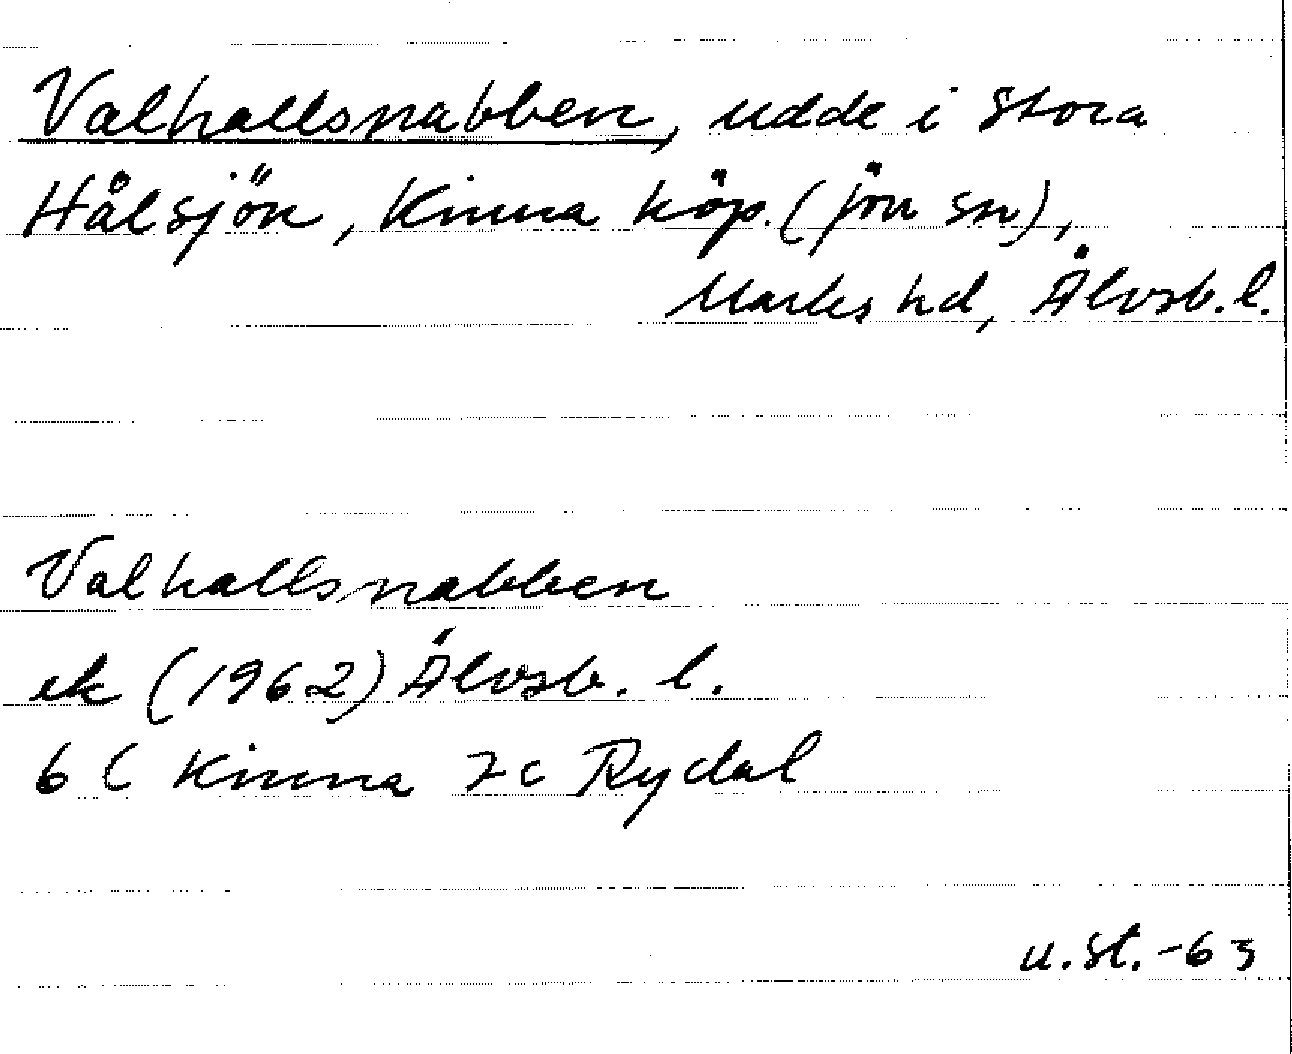 Valhallsnabben, udde i Stora
Hålsjön, Kinna köp. (jön sn),
Marks hd, Älvsb. l.
Valhallsnabben
ek (1962) Älvsb. l.
6 C Kinna 7c Rydal
u. St. -63